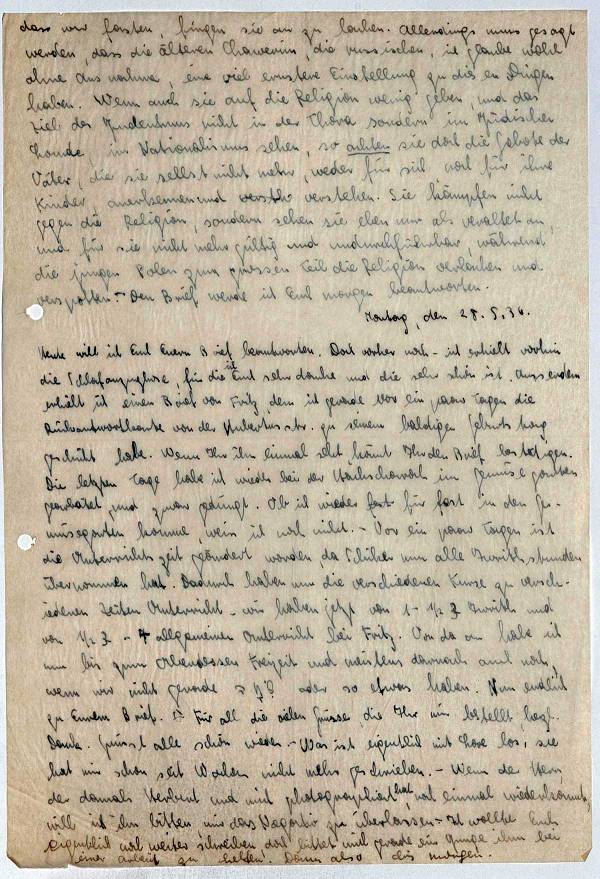 dass wir fasten, fingen sie an zu lachen. Allerdings muss gesagt
werden, dass die älteren Chawerim, die russischen, ich glaube wohl
ohne Ausnahme, eine viel ernstere Einstellung zu diesen Dingen
haben. Wenn auch sie auf die Religion wenig geben, und das
Ziel des Judentums nicht in der Thora sondern im Jüdischen
Lande im Nationalismus sehen, so achten sie doch die Gebote der
Väter, die sie selbst nicht mehr, weder für sich noch für ihre
Kinder, anerkennen und verstehen. Sie kämpfen nicht
gegen die Religion, sondern sehen sie eben nur als veraltet an,
und für sie nicht mehr gültig und undurchführbar, während
die jungen Polen zum grossen Teil die Religion verlachen und
verspotten. - Den Brief werde ich Euch morgen beantworten.
Montag, den 28.9.36.
Heute will ich Euch Euern Brief beantworten. Doch vorher noch - ich erhielt vorhin
die Schlafanzughose, für die ich Euch sehr danke und die sehr schön ist. Ausserdem
erhielt ich einen Brief von Fritz, dem ich gerade vor ein paar Tagen die
Rückantwortkarte von der Hubertusstr. zu seinem baldigen Geburtstag
geschickt habe. Wenn Ihr ihn einmal seht könnt Ihr den Brief bestätigen.
Die letzten Tage habe ich wieder bei der Hachscharah im Gemüsegarten
gearbeitet und zwar gedüngt. Ob ich wieder fest für fest in den Ge-
müsegarten komme, weis ich noch nicht. - Vor ein paar Tagen ist
die Unterrichtszeit geändert worden, da nun alle Iwrithstunden
übernommen hat. Dadurch haben nun die verschiedenen Kurse zu versch-
iedenen Zeiten Unterricht - wir haben jetzt von 1 - 1/2 3 Iwrith und
von 1/2 3 - 4 allgemeinen Unterricht bei Fritz. Von da an habe ich
nun bis zum Abendessen Freizeit und meistens darnach auch noch,
wenn wir nicht gerade oder so etwas haben. Nun endlich
zu Eurem Brief. Für all die vielen Grüsse, die Ihr mir bestellt, herzl.
Dank. Grüsst alle schön wieder. - Was ist eigentlich mit Lore los, sie
hat mir schon seit Wochen nicht mehr geschrieben. - Wenn der Herr,
der damals Herbert und mich photographiert hat, noch einmal wiederkommt,
will ich ihn bitten mir das Negativ zu überlassen - Ich wollte Euch
eigentlich noch weiter schreiben doch bittet mich gerade ein Junge ihm bei
einer Arbeit zu helfen. Dann also bis morgen.